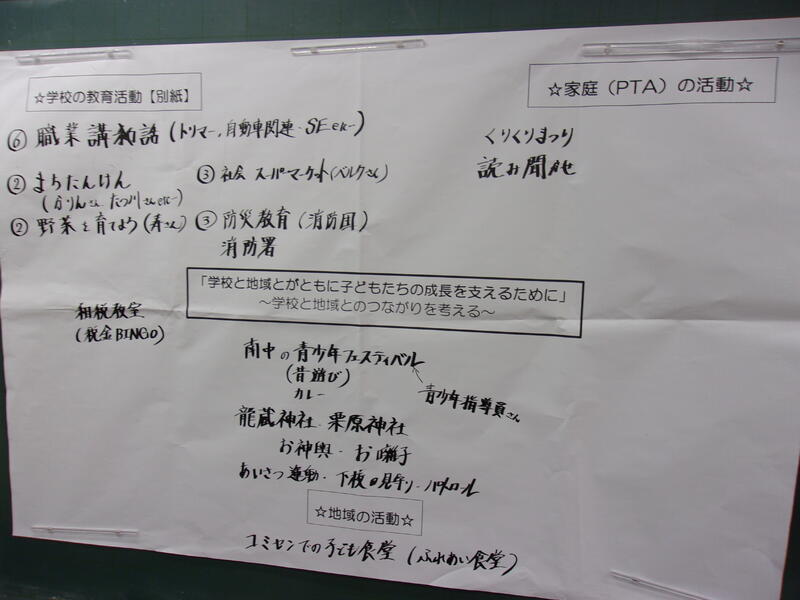 ☆学校の教育活動【別紙】
☆家庭（PTA）の活動☆
⑥ 職業講話（トリマー、自動車関連・SE etc）
くりくりまつり
読み聞かせ
② まちたんけん
（かりんさん たつ川さん etc）
③ 社会 スーパーマーケット（ベルクさん）
② 野菜を育てよう（寿さん）
③ 防災教育（消防団）
消防署
「学校と地域とがともに子どもたちの成長を支えるために」
～学校と地域とのつながりを考える～
租税教室
（税金BINGO）
南中の青少年フェスティバル
（昔遊び）
カレー
青少年指導員さん
龍蔵神社 栗原神社
お神輿・お囃子
あいさつ運動・下校の見守り・パトロール
☆地域の活動☆
コミセンでの子ども食堂（ふれあい食堂）